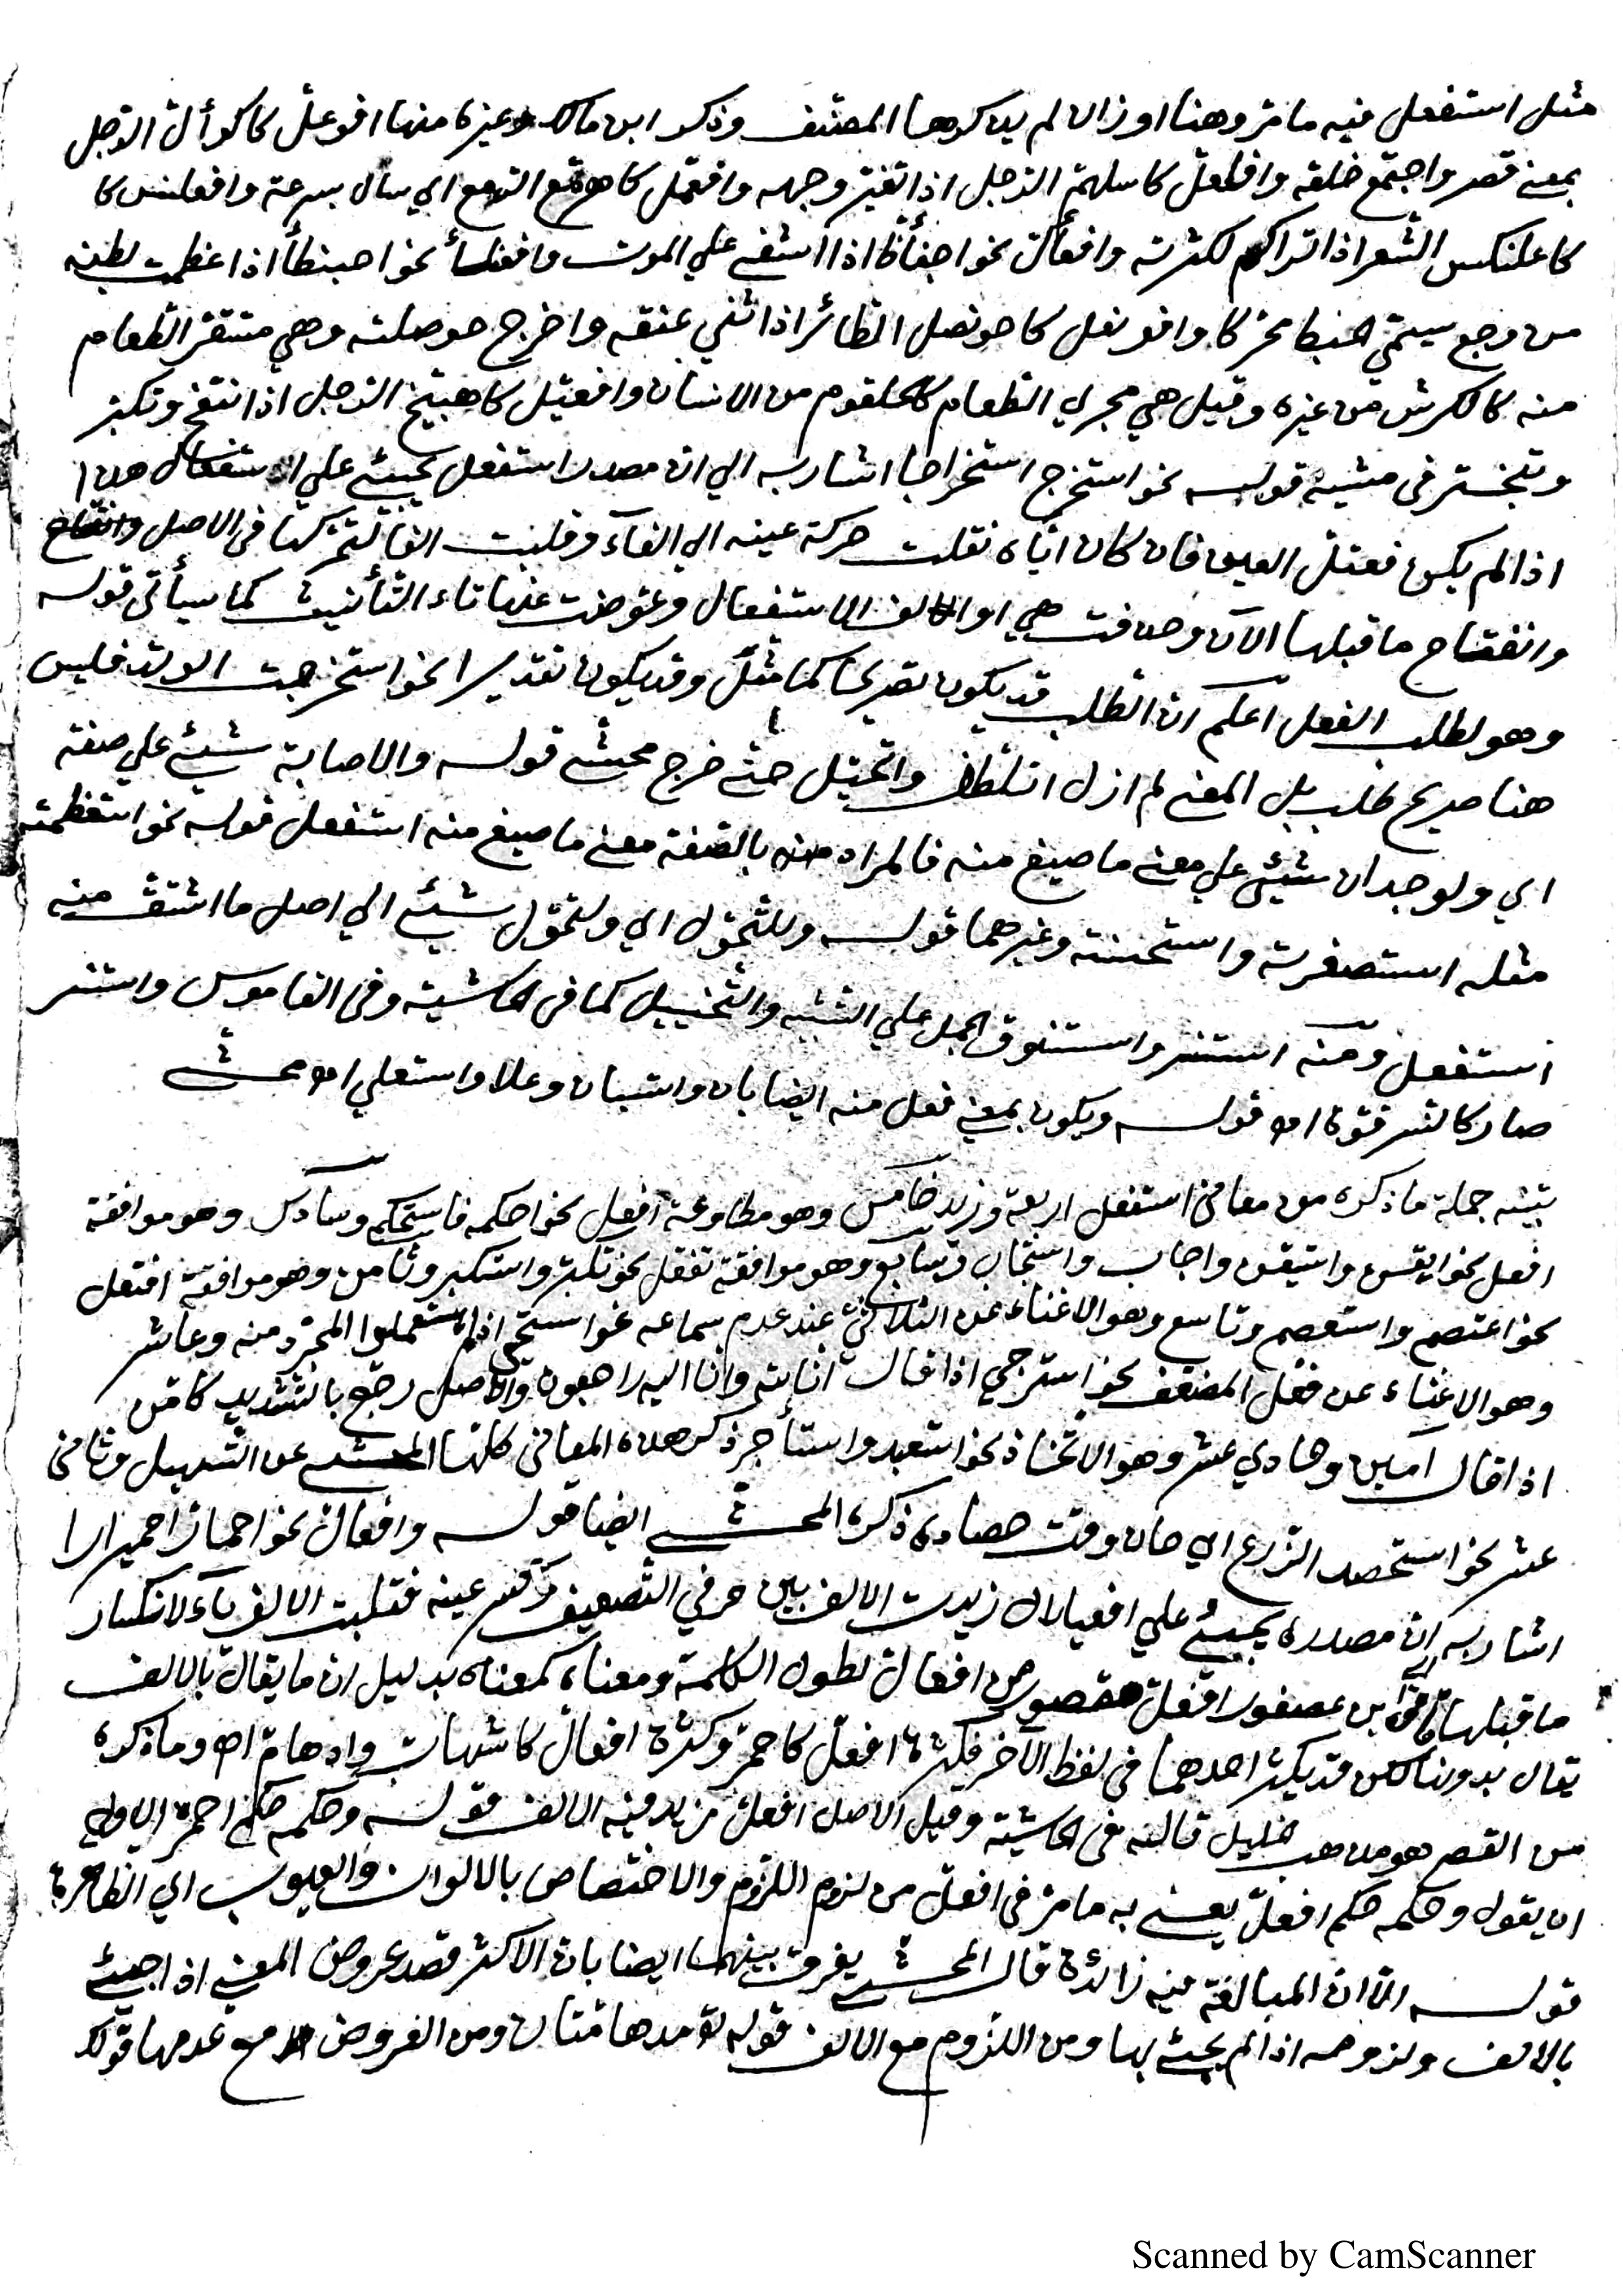 مثل استفعل فيه ما مرّ وهنا اوزان لم يذكرها المصنّف وذكر ابن مالك وغيره منها افوعلّ كاكوألّ الرّجل
بمعنى قصر واجتمع خلقه وافلعلّ كاسلهمّ الرّجل اذا تغيّر وجهه وافمعلّ كاهرمّع الدّمع اي سال بسرعة وافعلنس كا
كاعلنكس الشّعر اذا تراكم لكثرته وافعألّ نحو اجفأظّ اذا اشفى علي الموت وافعنلأ نحو احبنطأ اذا عظمت بطنه
من وجع يسمّى الحبطا محرّكا وافونعل كاحونصل الطّائر اذا ثنى عنقه واخرج حوصلته وهي مستقرّ الطّعام
منه كالكرش من غيره وقيل هي مجري الطّعام كالحلقوم من الانسان وافعيّل كاهبيّخ الرّجل اذا انتفخ وتكبّر
وتبختر في مشيه قوله نحو استخرج استخراجا اشار به الي ان مصدر استفعل يجيئ علي الاستفعال هذا
اذا لم يكن معتلّ العين فان كان ايّاه نقلت حركة عينه الي الفآء وقلبت الفا لتحرّكها في الاصل وانفتاح
وانفتاح ما قبلها الآن وحذفت هي او الالف الاستفعال وعوّضت عنها تاء التّأنيث كما سيأتي قوله
وهو لطلب الفعل اعلم ان الطّلب قد يكون تصريحا كما مثّل وقد يكون تقديرا نحو استخرجت الوتد فليس
هنا صريح طلب بل المعنى لم ازل اتلطّف واتحيّل حتّى خرج محشّى قوله والاصابة شيئ علي صفة
اي ولوجدان شيئ علي معنى ما صيغ منه فالمراد منه بالصّفة معنى ما صيغ منه استفعل قوله نحو استعظمته
مثله استصغرته واستحسنته وغيرهما قوله وللتّحوّل اي ولتحوّل شيئ الي اصل ما اشتقّ منه
استفعل ومنه استنسر واستنوق الجمل علي التّشبيه والتّخييل كما في الحاشية وفي القاموس واستنسر
صار كالنّسر قوّة اه قوله ويكون بمعنى فعل منه ايضا بان واستبان وعلا واستعلي اه محشّى
تنبيه جملة ما ذكره من معاني استفعل اربعة وزيد خامس وهو مطاوعة افعل نحو احكمه فاستحكم وسادس وهو موافقة
افعل نحو ايقن واستيقن واجاب واستجاب وسابع وهو موافقة تفعّل نحو تكبّر واستكبر وثامن وهو موافقة افتعل
نحو اعتصم واستعصم وتاسع وهو الاغناء عن الثلاثيّ عند عدم سماعه نحو استحي اذ لم يستعملوا المجرّد منه وعاشر
وهو الاغناء عن فعّل المضعّف نحو استرجع اذا قال انا لله وانا اليه راجعون والاصل رجّع بالتشديد كامّن
اذا قال آمين وحادي عشر وهو الاتّخاذ نحو استعبد واستأجر ذكر هذه المعاني كلّها المحشّى عن التّسهيل وثاني
عشر نحو استحصد الزّرع اي حان وقت حصاده ذكره المحشّى ايضا قوله وافعالّ نحو احمارّ احميرارا
اشار به ان مصدره يجيئ علي افعيلال زيدت الالف بين حرفي التّضعيف وكسر عينه فقلبت الالف يآء لانكسار
ما قبلها قال ابن عصفور افعلّ مقصور من افعالّ لطول الكلمة ومعناه كمعناه بدليل ان ما يقال بالالف
يقال بدونها لكن قد يكثر احدهما في لفظ الآخر فكثرة افعلّ كاحمرّ وكثرة افعالّ كاشهابّ وادهامّ اه وما ذكره
من القصر هو مذهب خليل قاله في الحاشية وقيل الاصل افعلّ مزيد فيه الالف قوله وحكمه حكم احمرّ الاولي
ان يقول وحكمه حكم افعلّ يعنى به ما مرّ في افعلّ من لزوم اللّزوم والاختصاص بالالوان والعيوب اي الظاهرة
قوله الّا انّ المبالغة فيه زائدة قال المحشّى يفرق بينهما ايضا بان الاكثر قصد عروض المعنى اذا جيئ
بالالف ولزومه اذا لم يجئ بها ومن اللّزوم مع الالف قوله تع مدهامّتان ومن العروض مع عدمها قولك
Scanned by CamScanner